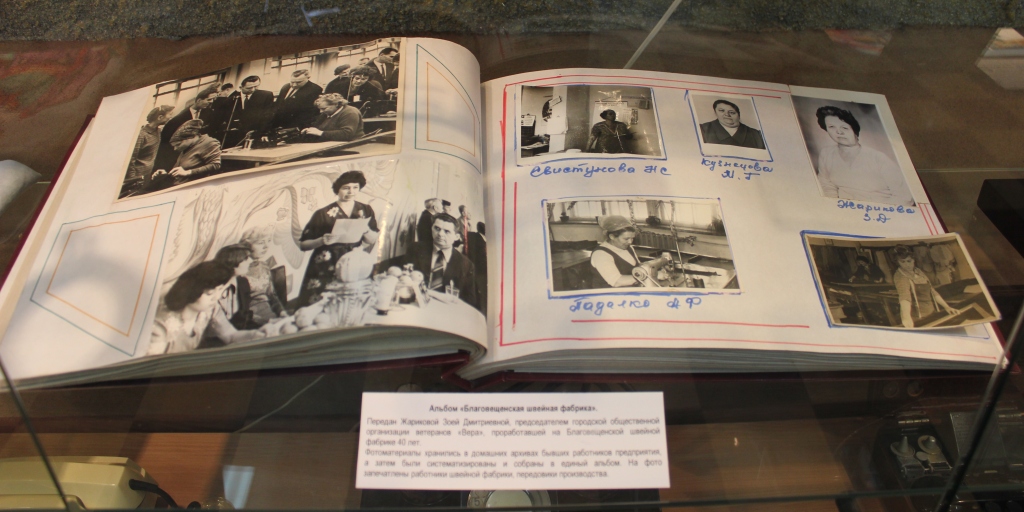 Свистунова НС
Кузнецова
М.Г
Жарикова
З.Д
Падалко А Ф
Альбом «Благовещенская швейная фабрика».
Передан Жариковой Зоей Дмитриевной, председателем городской общественной
организации ветеранов «Вера», проработавшей на Благовещенской швейной
фабрике 40 лет.
Фотоматериалы хранились в домашних архивах бывших работников предприятия,
а затем были систематизированы и собраны в единый альбом. На фото
запечатлены работники швейной фабрики, передовики производства.